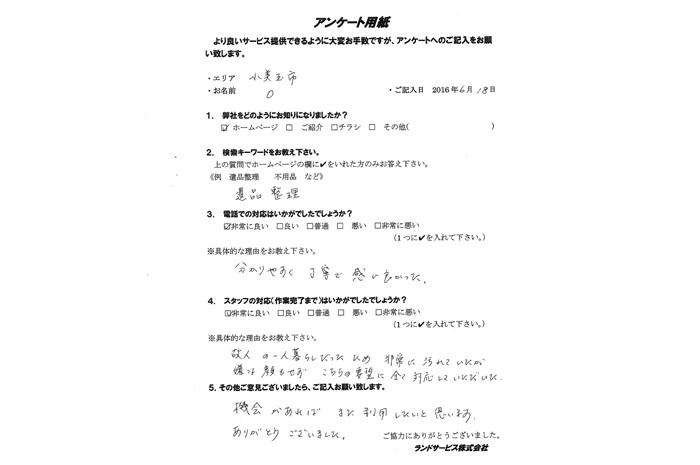 アンケート用紙
より良いサービス提供できるように大変お手数ですが、アンケートへのご記入をお願
い致します。
・エリア 小美玉市
・お名前 O ・ご記入日 2016年6月18日
1. 弊社をどのようにお知りになりましたか?
☑ ホームページ □ ご紹介 □チラシ □ その他( )
2. 検索キーワードをお教え下さい。
上の質問でホームページの欄に✔をいれた方のみお答え下さい。
《例 遺品整理 不用品 など》
遺品整理
3. 電話での対応はいかがでしたでしょうか?
☑非常に良い □良い □普通 □ 悪い □非常に悪い
(1つに✔を入れて下さい。)
※具体的な理由をお教え下さい。
分かりやすく 丁寧で 感じ良かった。
4. スタッフの対応(作業完了まで)はいかがでしたでしょうか?
☑非常に良い □良い □普通 □ 悪い □非常に悪い
(1つに✔を入れて下さい。)
※具体的な理由をお教え下さい。
故人の一人暮らしだったため 非常に汚れていたが
嫌な顔もせず こちらの要望に全て対応していただいた。
5. その他ご意見ございましたら、ご記入お願い致します。
機会があれば また利用したいと思います。
ありがとうございました。 ご協力にありがとうございました。
ランドサービス株式会社